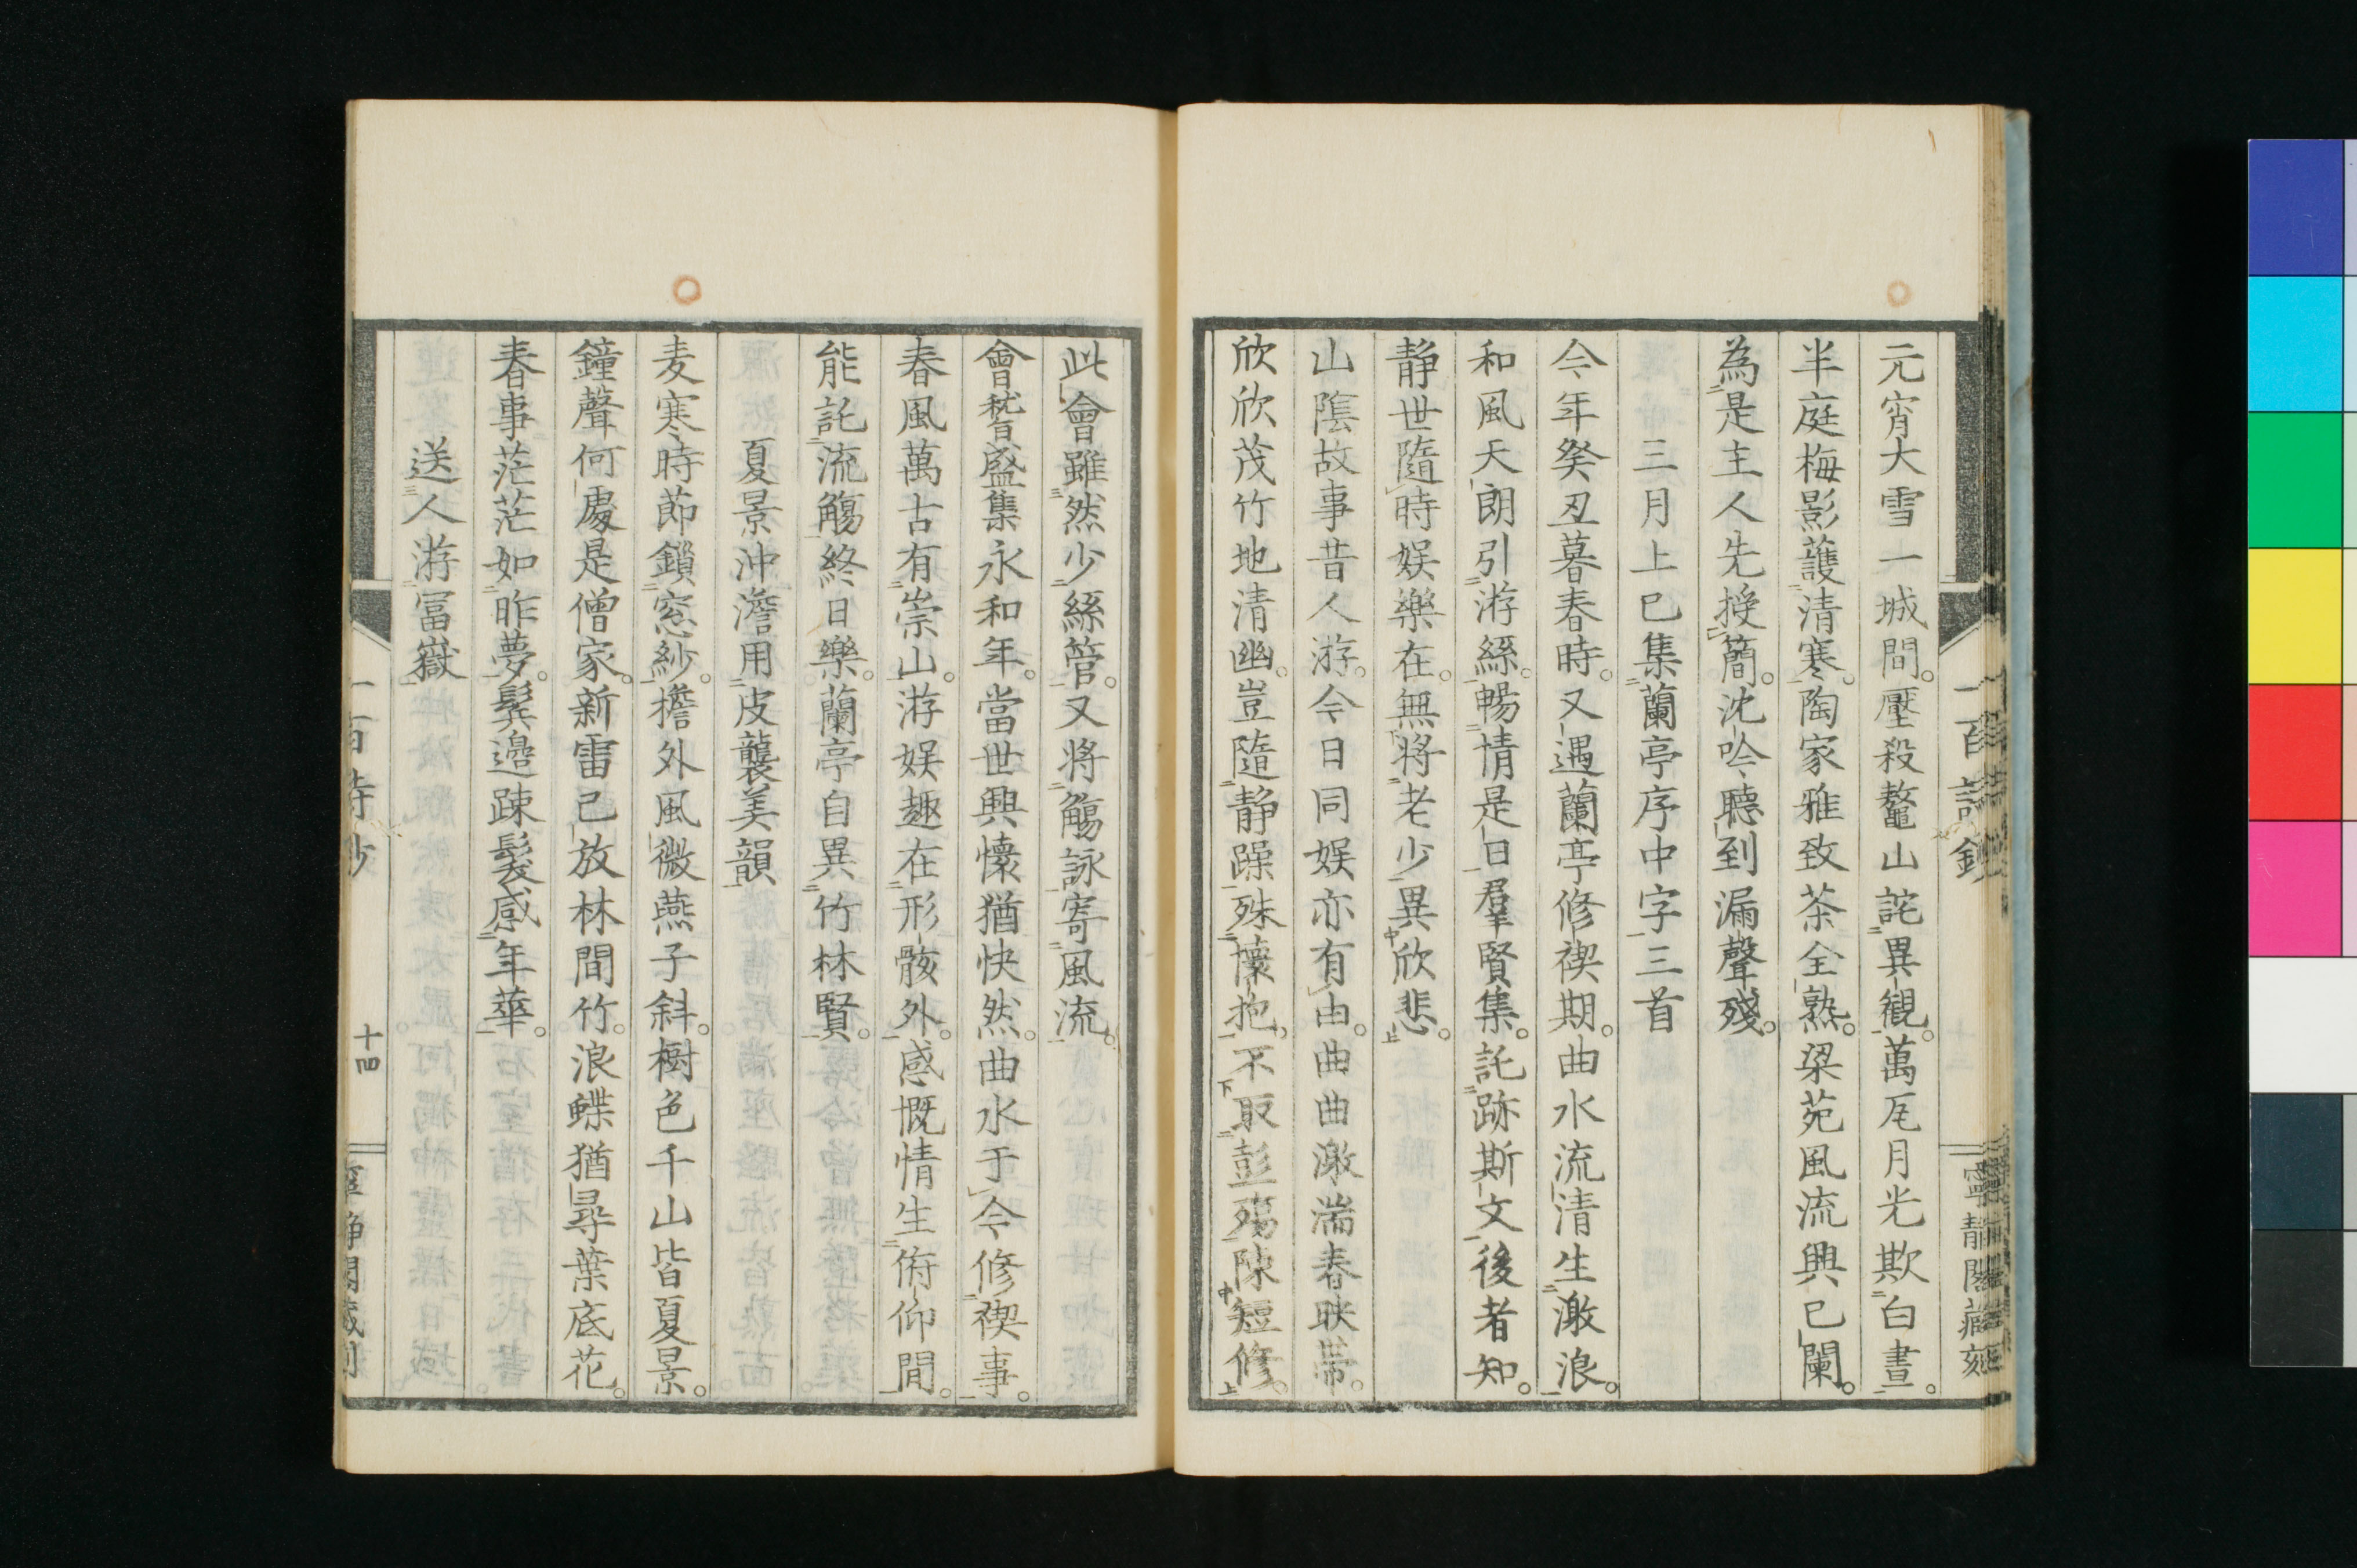 元宵大雪一城間。壓殺鼇山詫異觀。萬瓦月光欺白晝。
半庭梅影護清寒。陶家雅致茶全熟。梁苑風流興已闌。
為是主人先授簡。沈吟聽到漏聲殘。
三月上巳集蘭亭序中字三首
今年癸丑暮春時。又遇蘭亭修禊期。曲水流清生激浪。
和風天朗引游絲。暢情是日羣賢集。託跡斯文後者知。
靜世隨時娛樂在。無將老少異欣悲。
山陰故事昔人游。今日同娛亦有由。曲曲激湍春映帶。
欣欣茂竹地清幽。豈隨靜躁殊懷抱。不取彭殤陳短修。
一百詩鈔
寧靜閣藏刻
此會雖然少絲管。又將觴詠寄風流。
會稽盛集永和年。當世興懷猶快然。曲水于今修禊事。
春風萬古有崇山。游娛趣在形骸外。感慨情生俯仰間。
能託流觴終日樂。蘭亭自異竹林賢。
夏景沖澹用皮襲美韻
麦寒時節鎖窓紗。擔外風微燕子斜。樹色千山皆夏景。
鐘聲何處是僧家。新雷已放林間竹。浪蝶猶尋葉底花。
春事茫茫如昨夢。鬂邊疎髮感年華。
送人游富嶽
一百詩鈔
十四
寧靜閣藏刻